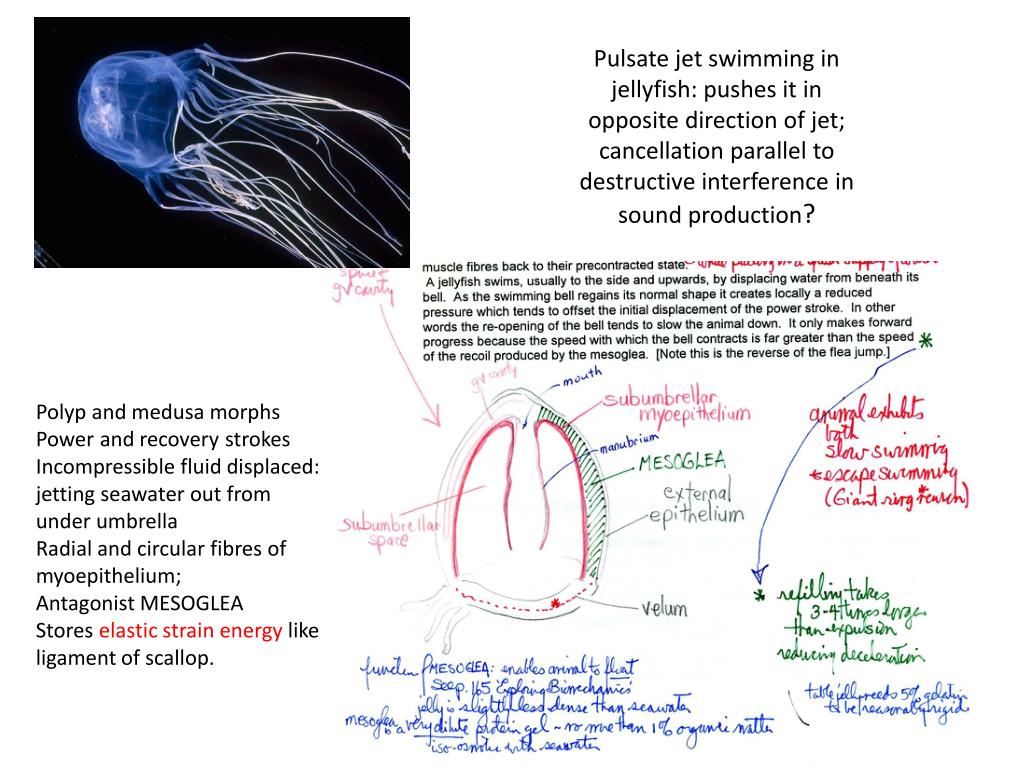 Pulsate jet swimming in
jellyfish: pushes it in
opposite direction of jet;
cancellation parallel to
destructive interference in
sound production?
space
gv cavity
muscle fibres back to their precontracted state.
A jellyfish swims, usually to the side and upwards, by displacing water from beneath its
bell. As the swimming bell regains its normal shape it creates locally a reduced
pressure which tends to offset the initial displacement of the power stroke. In other
words the re-opening of the bell tends to slow the animal down. It only makes forward
progress because the speed with which the bell contracts is far greater than the speed *
of the recoil produced by the mesoglea. [Note this is the reverse of the flea jump.]
Polyp and medusa morphs
Power and recovery strokes
Incompressible fluid displaced:
jetting seawater out from
under umbrella
Radial and circular fibres of
myoepithelium;
Antagonist MESOGLEA
Stores elastic strain energy like
ligament of scallop.
gv cavity
mouth
subumbrellar
myoepithelium
manubrium
MESOGLEA
external
epithelium
subumbrellar
space
velum
animal exhibits
both
slow swimming
+ escape swimming
(Giant ring
* refilling takes
3-4 times longer
than expulsion
reducing deceleration
function MESOGLEA: enables animal to float
See p. 165 Exploring Biomechanics
jelly is slightly less dense than seawater
mesoglea is a very dilute protein gel ~ no more than 1% organic matter
iso-osmotic with seawater
table jelly needs 5% gelatin
to be reasonably rigid